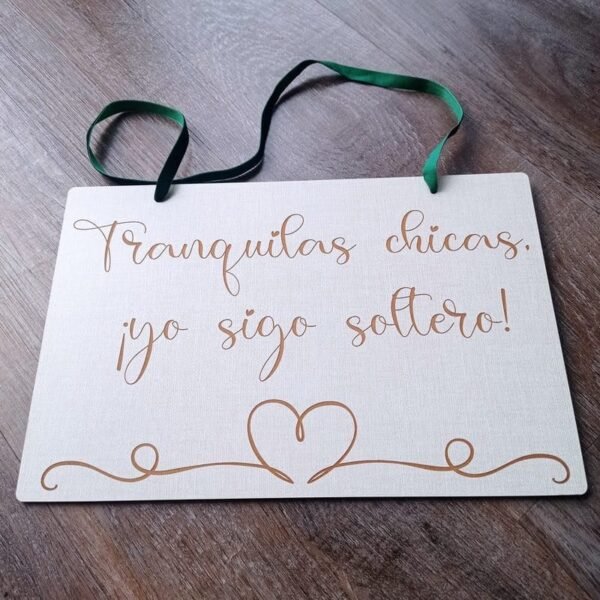 Tranquilas chicas,
¡yo sigo soltero!